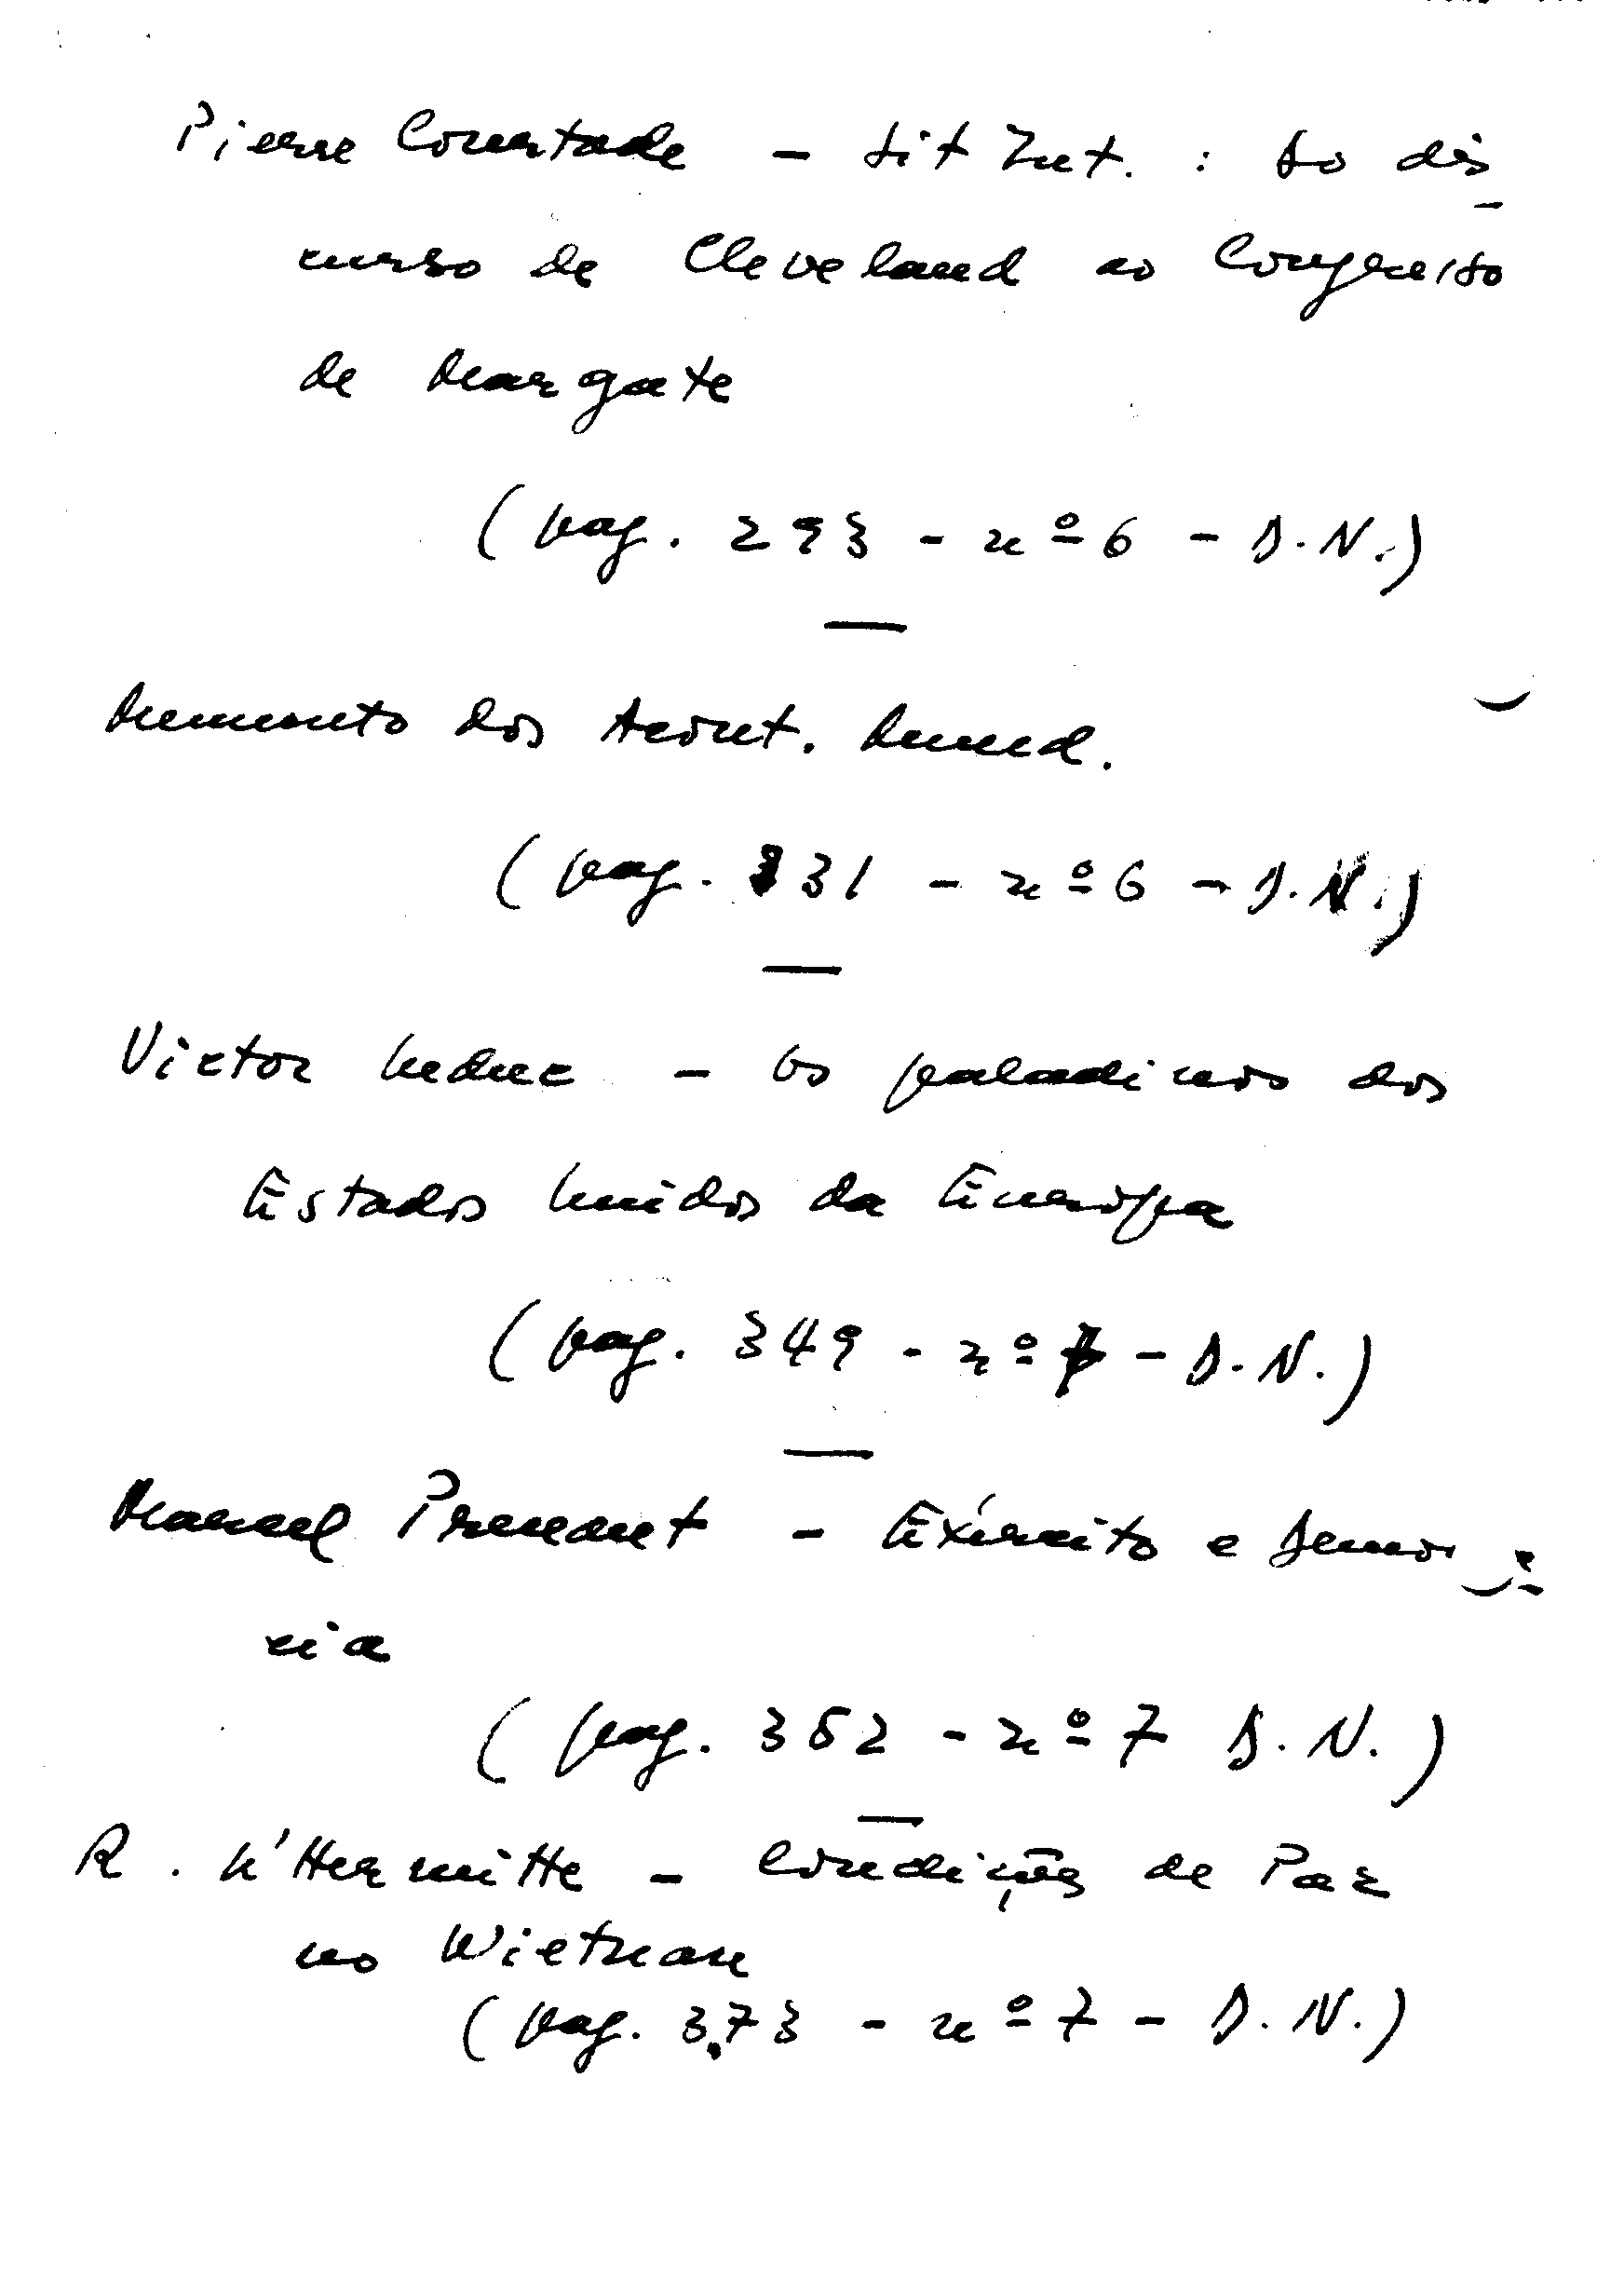 Pierre Courtade - Sit Int. : Do dis
curso de Cleveland ao Congresso
de Margate
(pag. 293 - nº 6 - D.N.)
Memento dos Acont. Mund.
(pag. 331 - nº 6 - D.N.)
Victor Leduc - Os paladinos dos
Estados Unidos da Europa
(pag. 349 - nº 7 - D.N.)
Marcel Prenant - Exército e Democra
cia
(pag. 362 - nº 7 D.N.)
R. L'Hermitte - Condições de Paz
no Wietnam
(pag. 373 - nº 7 - D.N.)